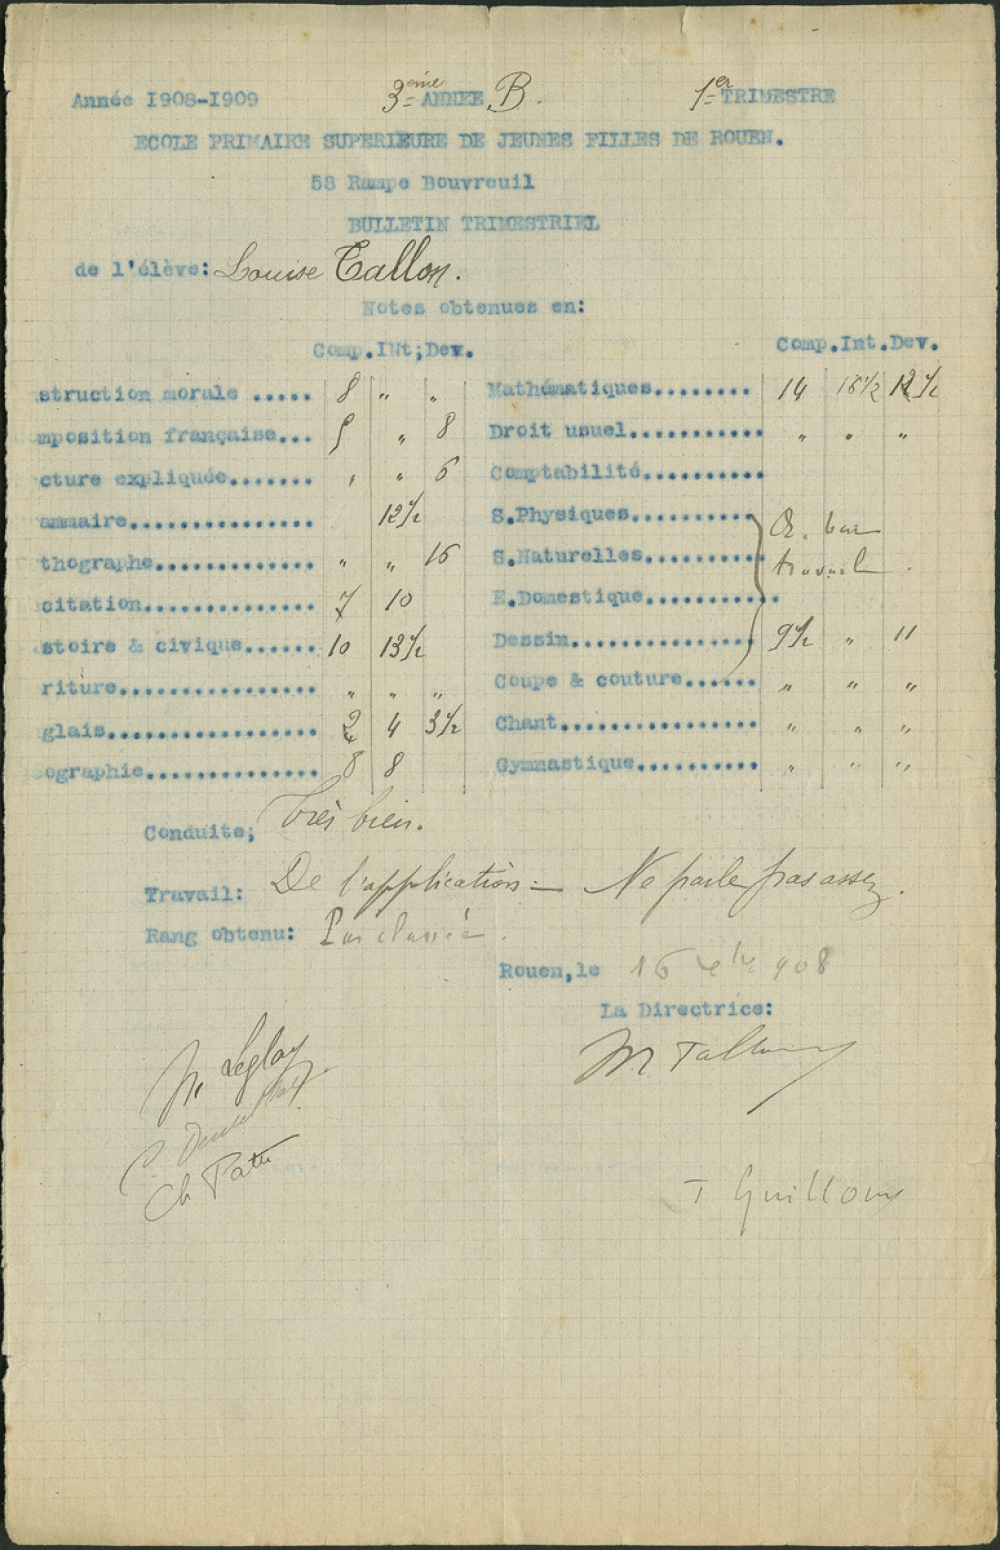 Année 1908-1909 3ème ANNEE B. 1er TRIMESTRE
ECOLE PRIMAIRE SUPERIEURE DE JEUNES FILLES DE ROUEN.
58 Rampe Bouvreuil
BULLETIN TRIMESTRIEL
de l'élève: Louise Tallon.
Notes obtenues en:
Comp.Int;Dev. Comp.Int.Dev.
struction morale ..... 8 " " Mathématiques........ 14 16 1/2 12 1/2
mposition française... 9 " 8 Droit usuel........... " " "
cture expliquée....... " " 6 Comptabilité..........
ammaire............... 12 1/2 S.Physiques..........
thographe............. " " 16 S.Naturelles..........
citation.............. 7 10 E.Domestique...........
travail.
stoire & civique...... 10 13 1/2 Dessin............... 9 1/2 " 11
riture................ " " " Coupe & couture...... " " "
glais................. 2 4 3 1/2 Chant................ " " "
ographie.............. 8 8 Gymnastique.......... " " "
Conduite; Très bien.
Travail: De l'application - Ne parle pas assez.
Rang obtenu: Pas classée.
Rouen,le 16 908
La Directrice:
M Leglay
Ch Patte
T Guilloux